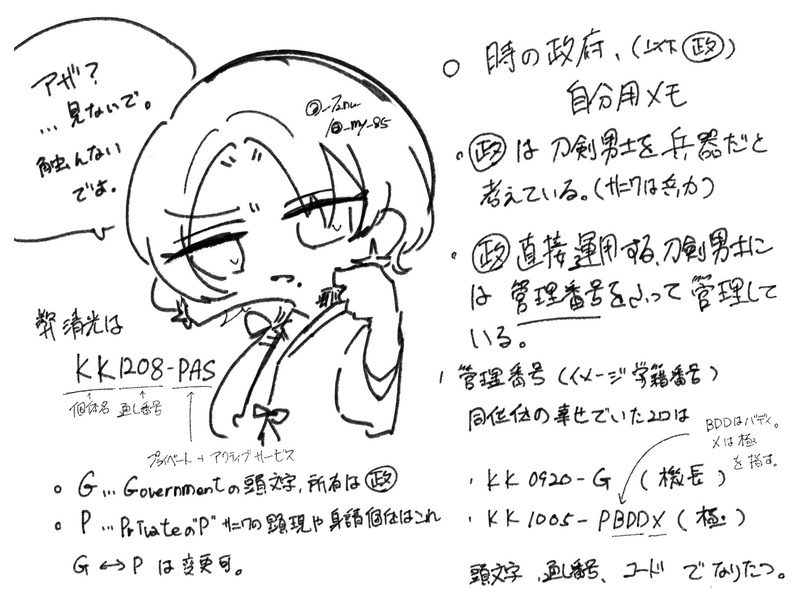 アザ?
…見ないで。
触んない
でよ。
@_7anu_
/@_my_85
弊清光は
KK1208-PAS
個体名 通し番号
プライベート + アクティブサービス
○ G… Governmentの頭文字、所有は政
○ P… Privateの"P" サニワの顕現や身請個体はこれ
G ↔ P は変更可。
○ 時の政府、(以下 政)
自分用メモ
・政は刀剣男士を兵器だと
考えている。(サニワは兵力)
・政直接運用する、刀剣男士に
は 管理番号をふって管理して
いる。
管理番号 (イメージ学籍番号)
同位体の幸せでいた2口は
BDDはバディ。
Xは極
を指す。
・KK0920-G (機長)
・KK1005-PBDDX (極)
頭文字、通し番号、コード でなりたつ。